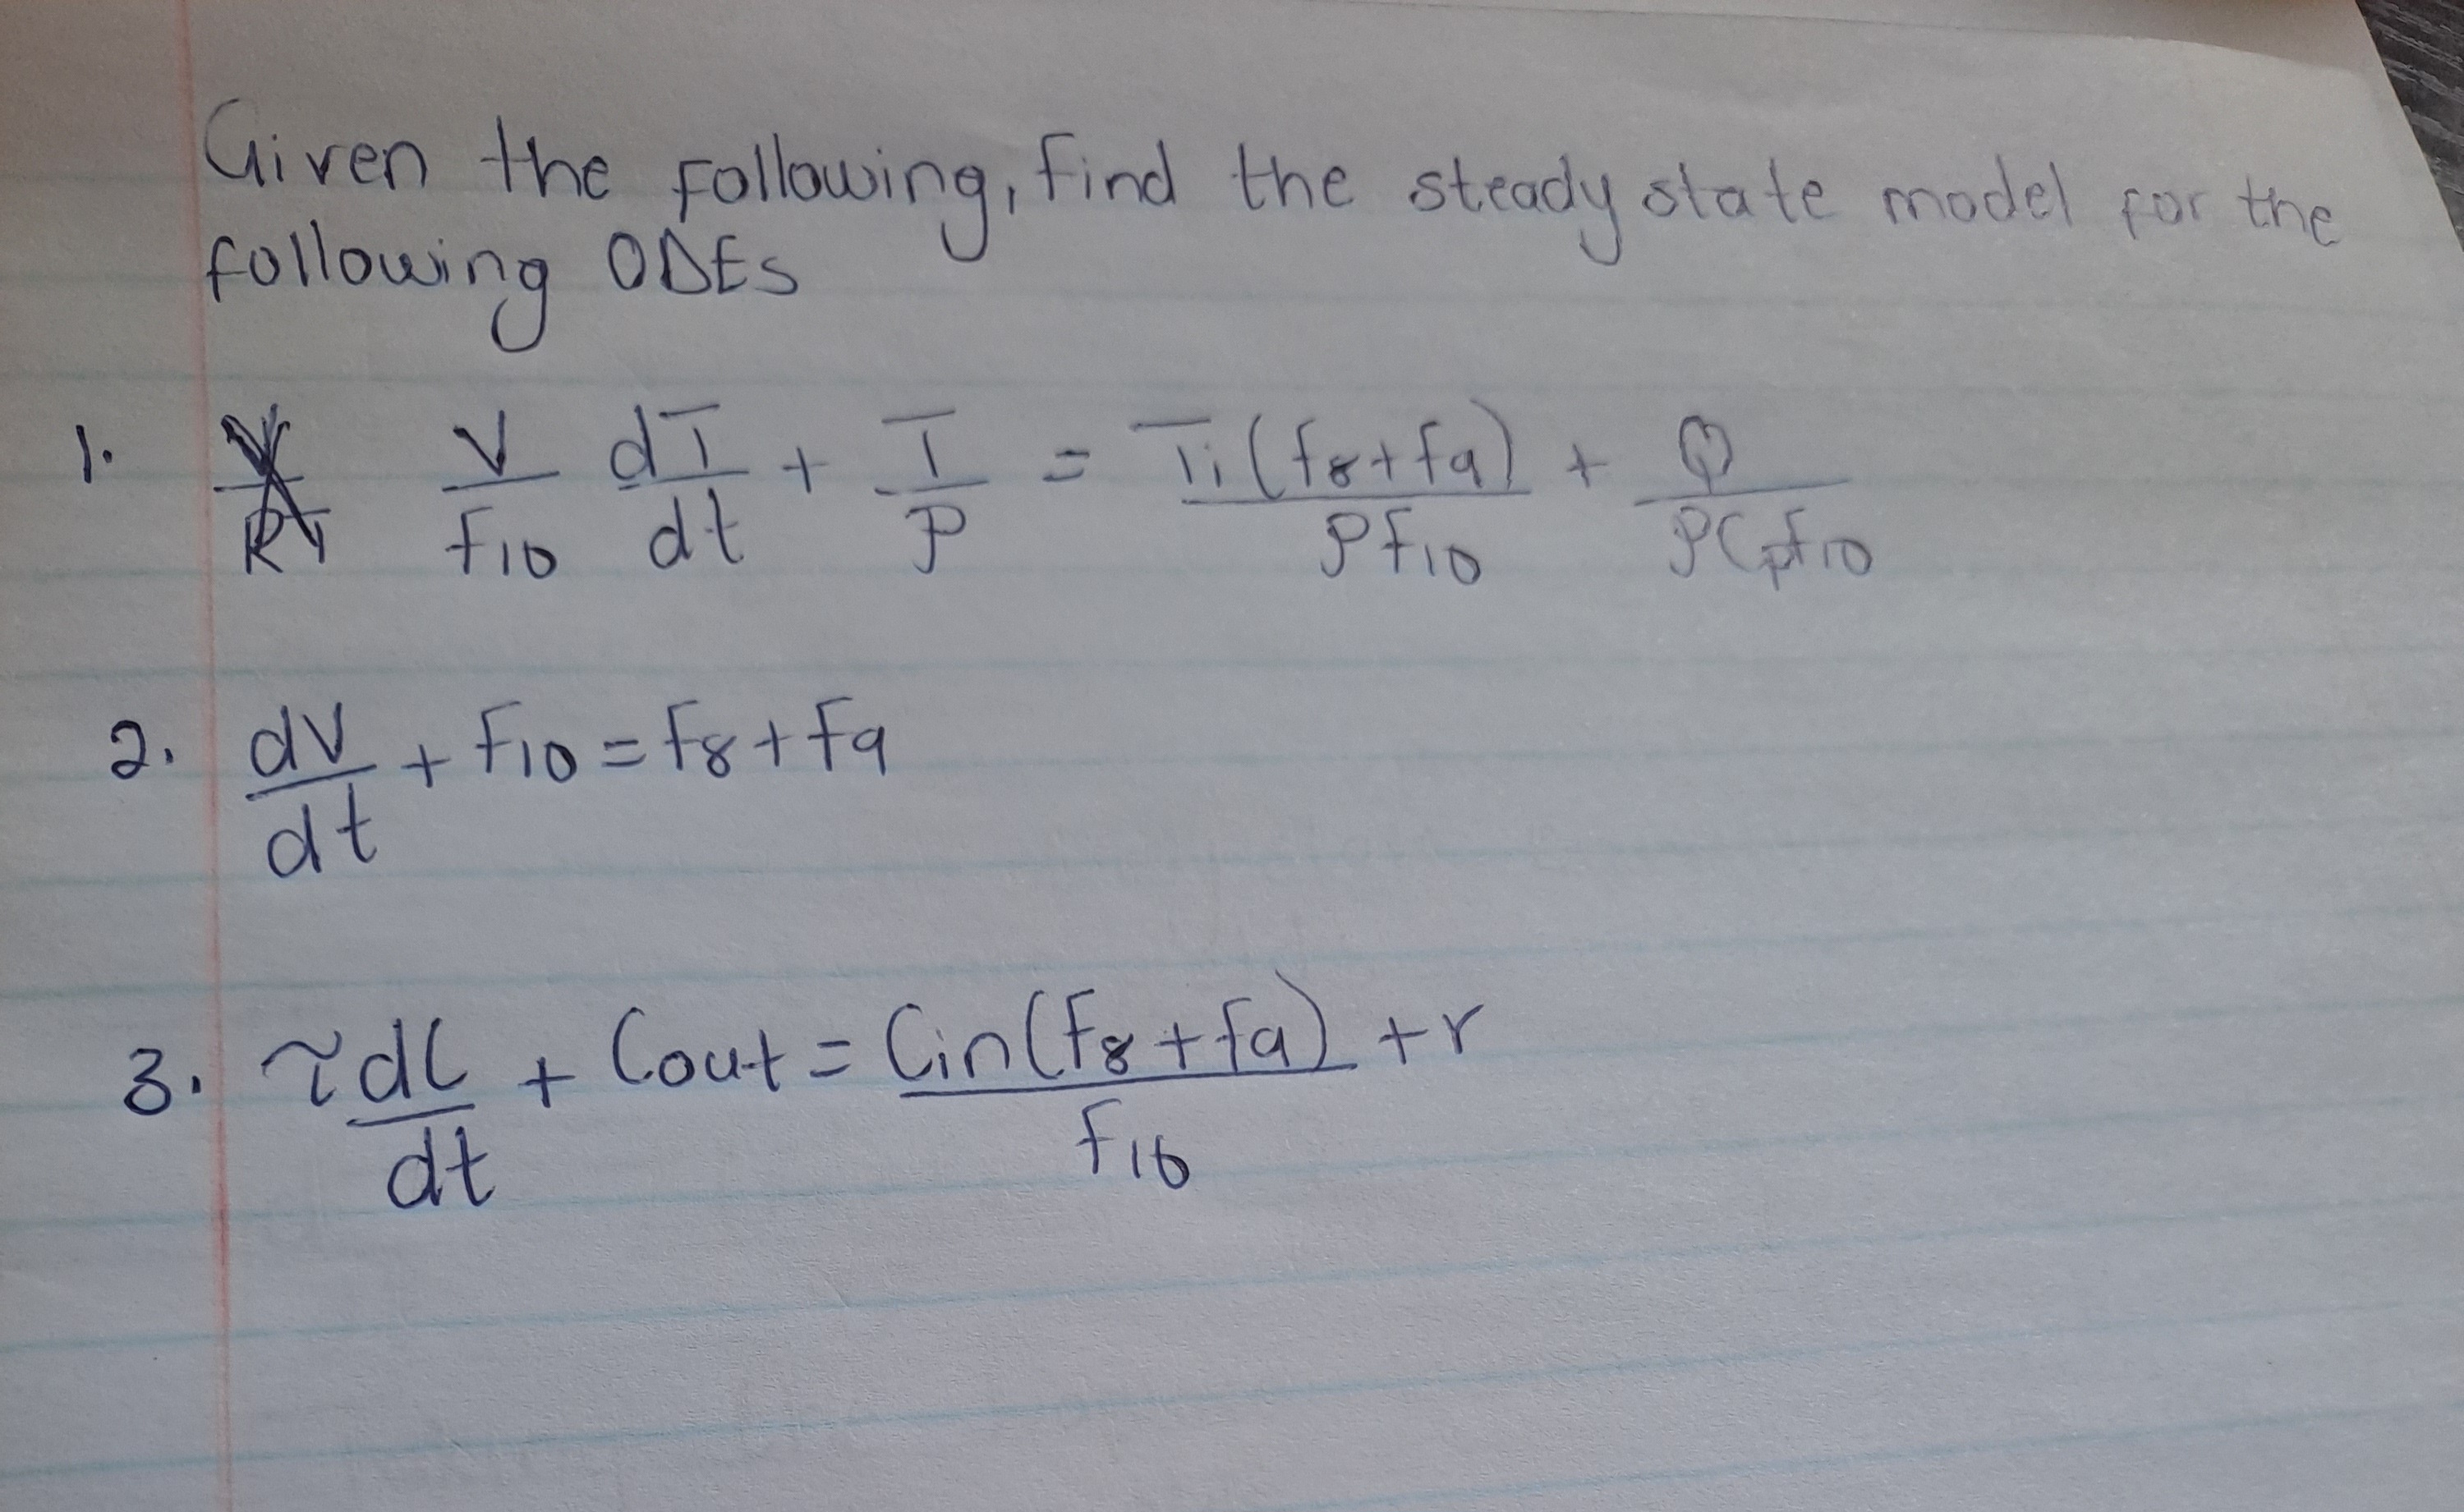 Given the following, find the steady state model for the
following ODEs
1. V/F10 dT/dt + T/ρ = Ti(F8+F9)/ρF10 + Q/ρCpF10
2. dV/dt + F10 = F8 + F9
3. τ dC/dt + Cout = Cin(F8+F9)/F10 + r